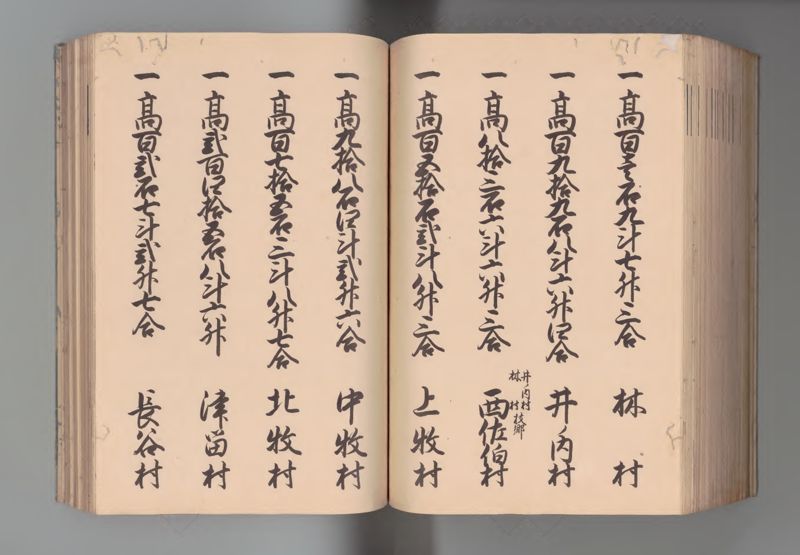 一高百壱石九斗七升三合 林村
一高百九拾九石八斗六升四合 井ノ内村
一高八拾三石六斗六升三合 井ノ内村 林村 枝郷 西佐伯村
一高百五拾石弐斗八升三合 上牧村
一高九拾八石四斗弐升六合 中牧村
一高百七拾五石三斗八升七合 北牧村
一高弐百四拾五石八斗六升 津留村
一高百弐石七斗弐升七合 長谷村